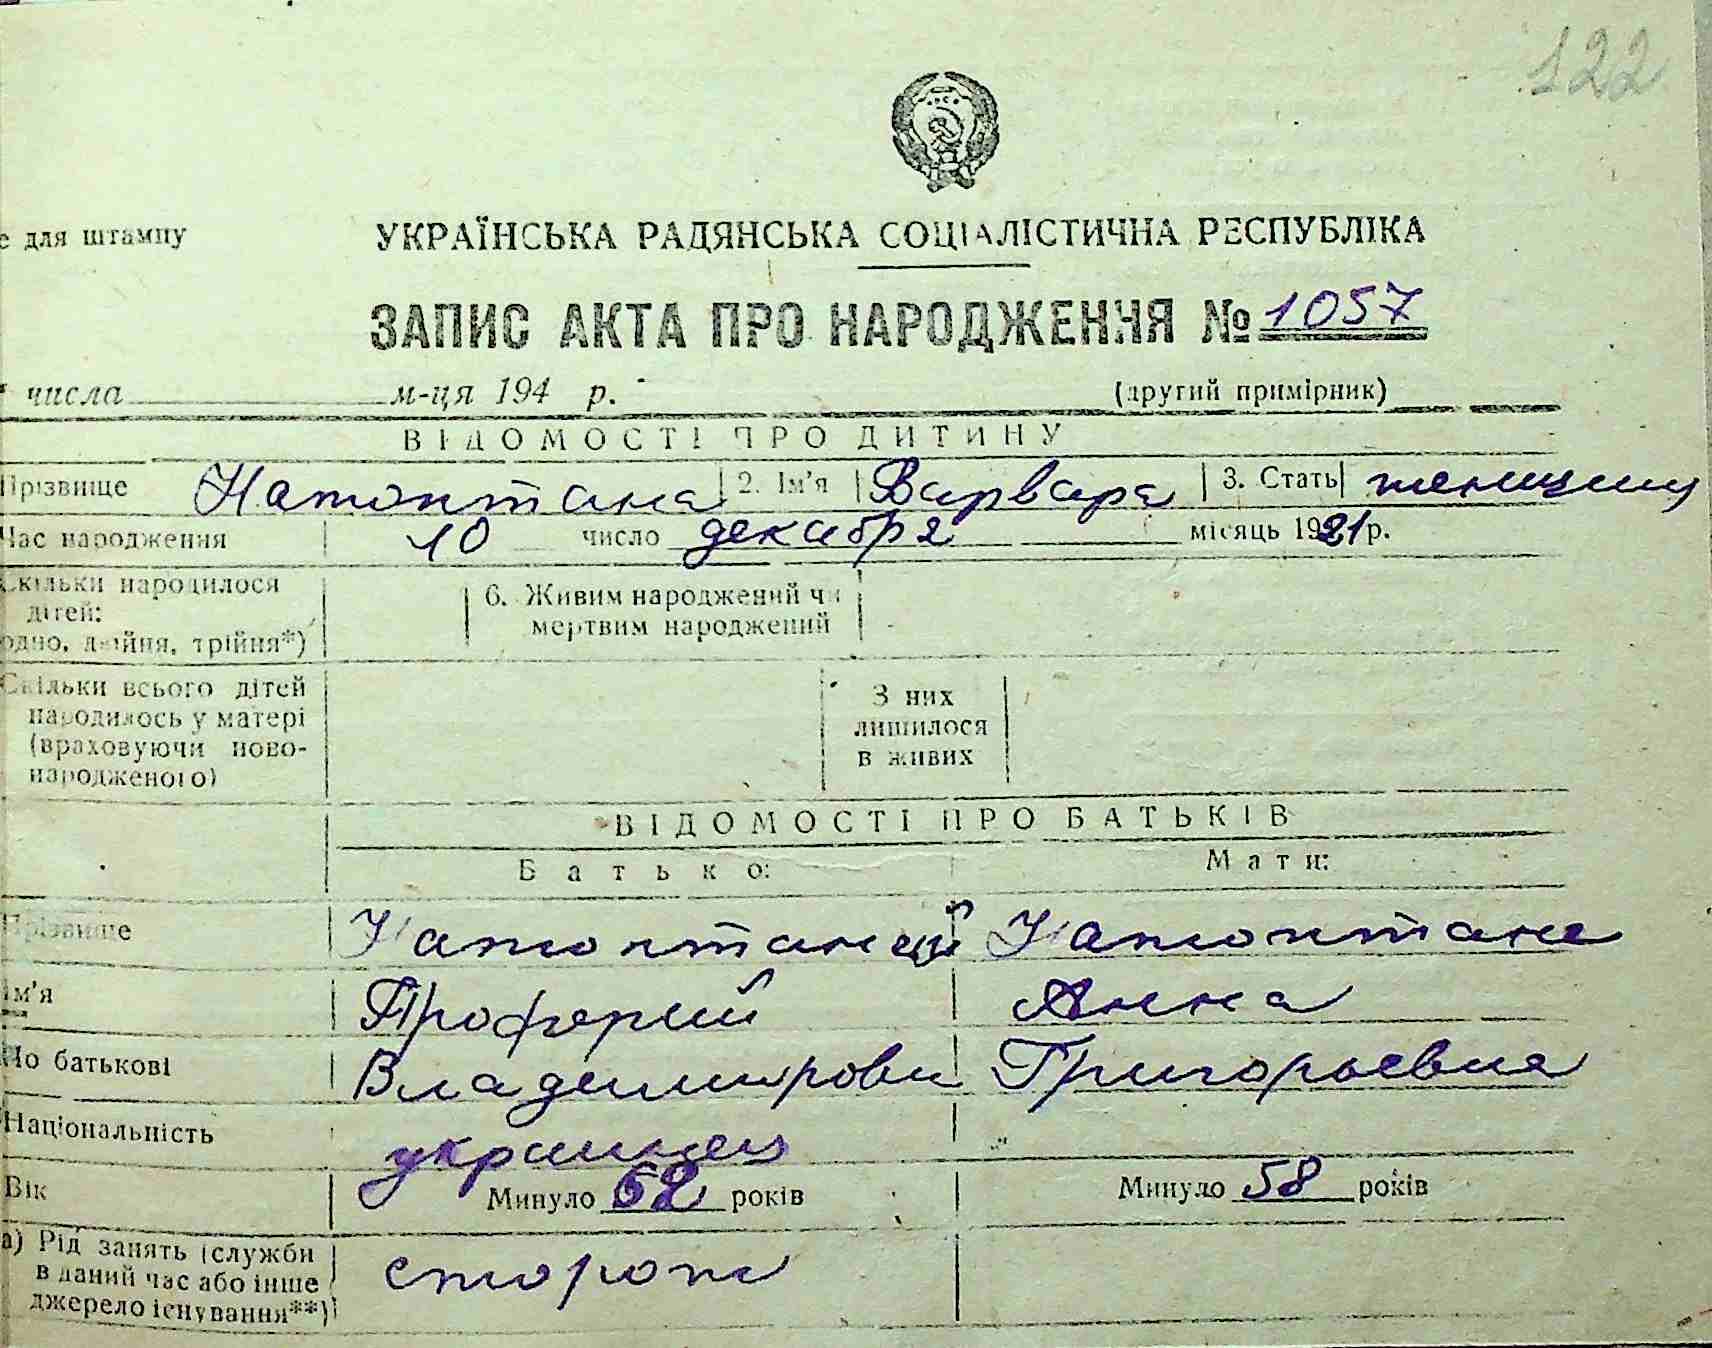 122
е для штампу
УКРАЇНСЬКА РАДЯНСЬКА СОЦІАЛІСТИЧНА РЕСПУБЛІКА
ЗАПИС АКТА ПРО НАРОДЖЕННЯ № 1057
числа м-ця 194 р.
(другий примірник)
ВІДОМОСТІ ПРО ДИТИНУ
Прізвище 2. Ім'я Варвара 3. Стать женщина
Час народження 10 число декабря місяць 1921 р.
Скільки народилося дітей: одно, двійня, трійня*)
6. Живим народжений чи мертвим народжений
Скільки всього дітей народилось у матері (враховуючи ново-народженого)
З них лишилося в живих
ВІДОМОСТІ ПРО БАТЬКІВ
Батько: Мати:
Прізвище
Ім'я Анна
По батькові Владимирови Григорьевна
Національність украинец "
Вік Минуло 62 років Минуло 58 років
а) Рід занять (служби в даний час або інше джерело існування**) сторож